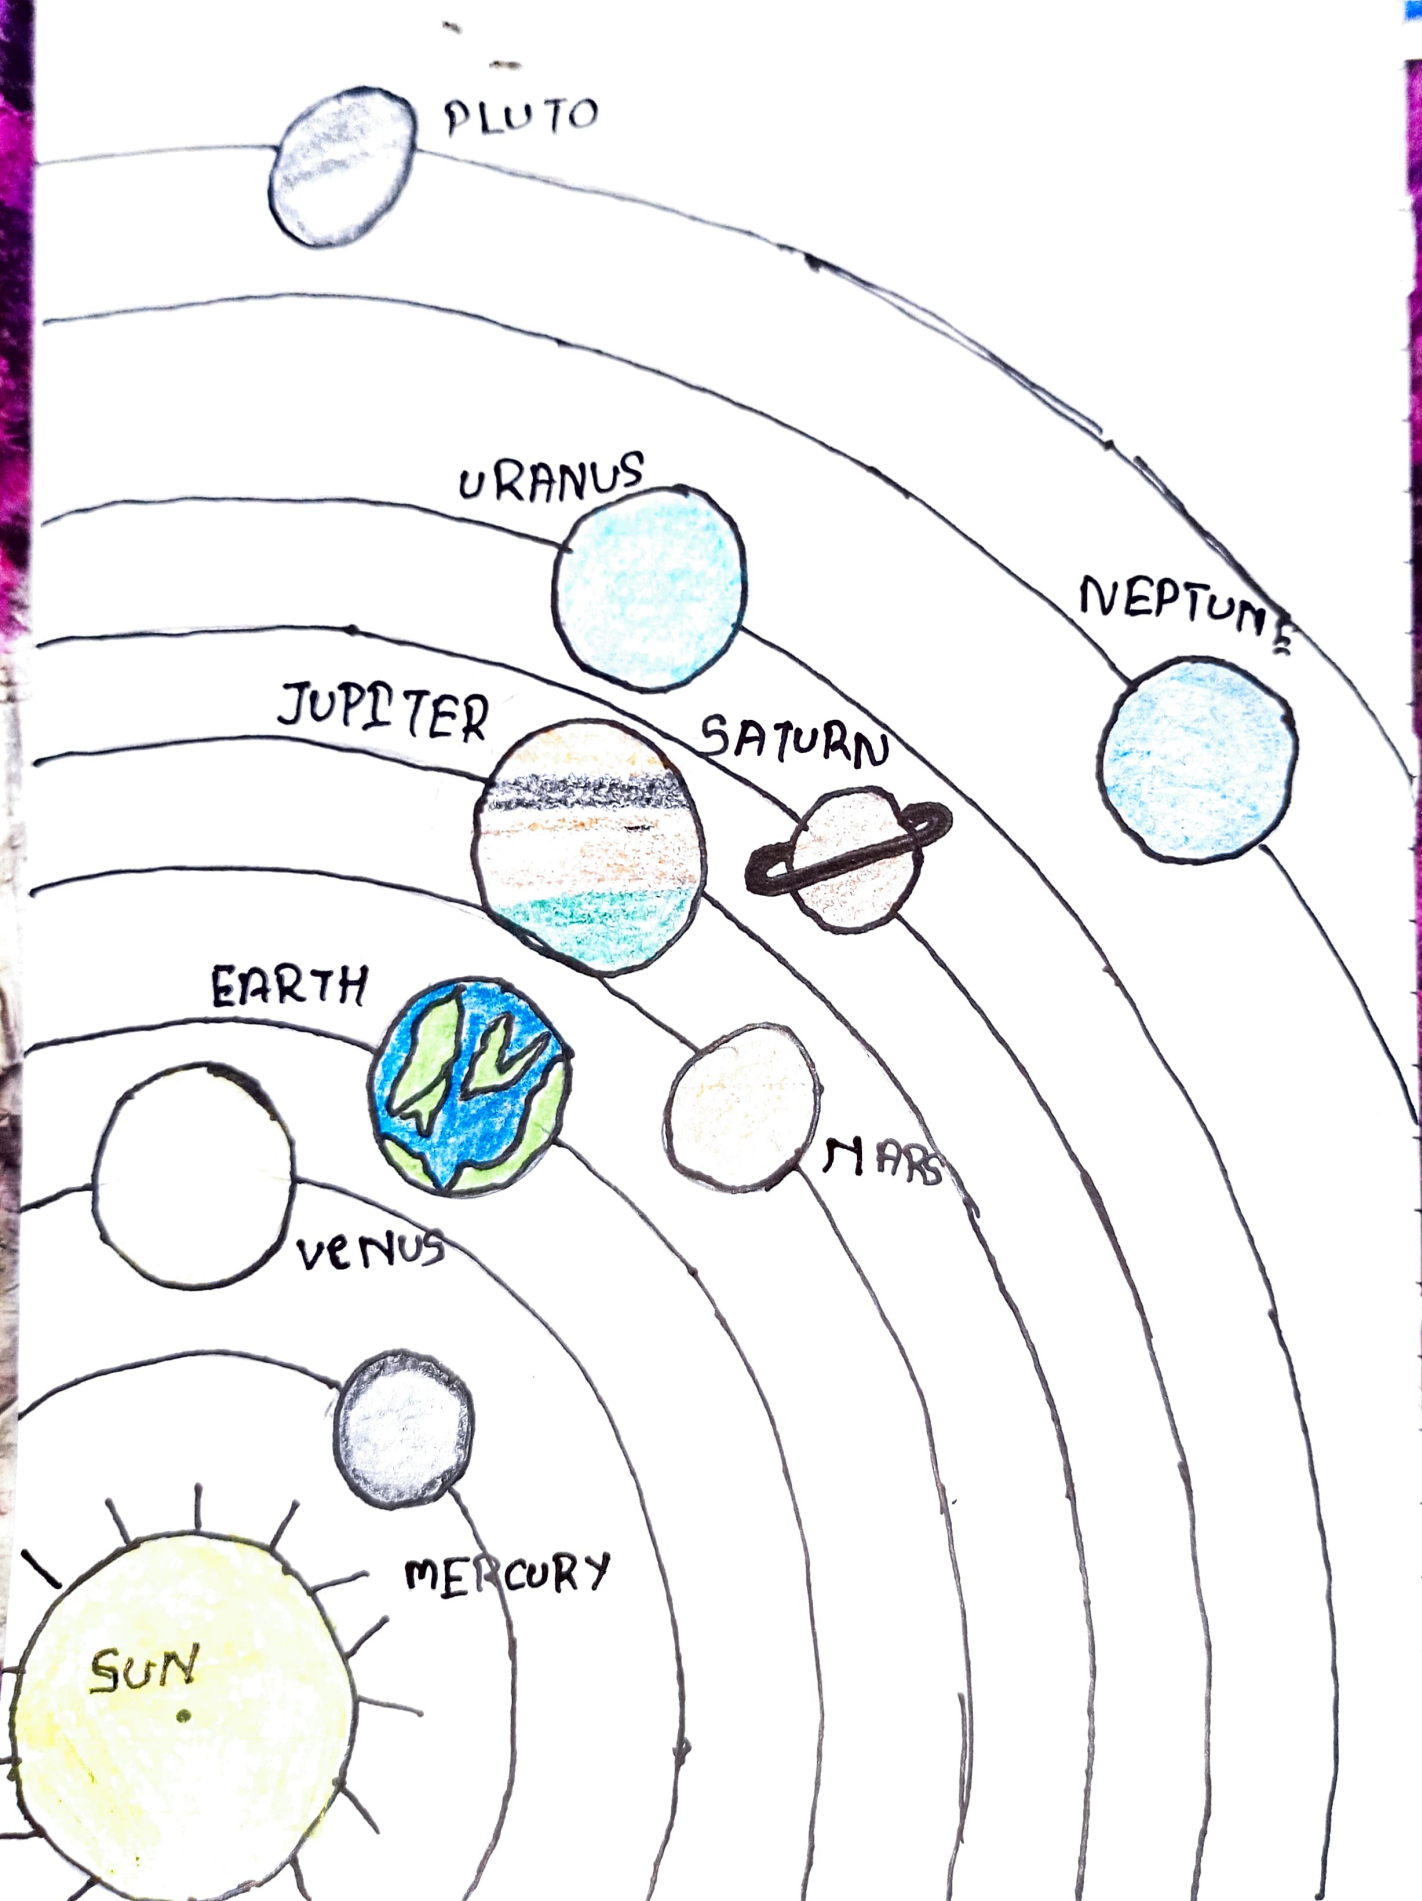 PLUTO
URANUS
NEPTUNE
JUPITER
SATURN
EARTH
MARS
VeNUS
mERCURY
SUN